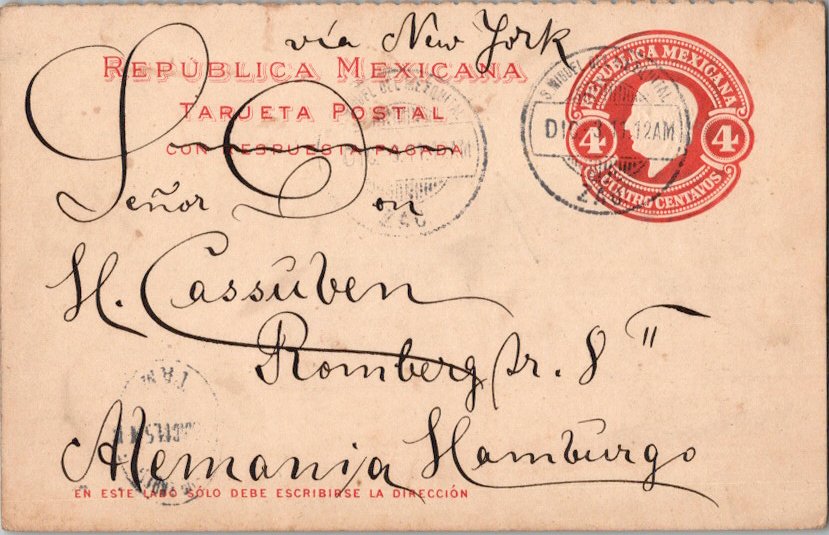 vía New York
REPÚBLICA MEXICANA
TARJETA POSTAL
CON RESPUESTA PAGADA
REPÚBLICA MEXICANA
4 4
CUATRO CENTAVOS
S. MIGUEL DEL MEZQUITAL
DIC 3 11 12AM
ZAC
MIGUEL DEL MEZQUITAL
DIC
ZAC
Señor Don
H. Cassuben
Rombergstr. 8 II
Alemania Hamburgo
TAM
EN ESTE LADO SÓLO DEBE ESCRIBIRSE LA DIRECCIÓN